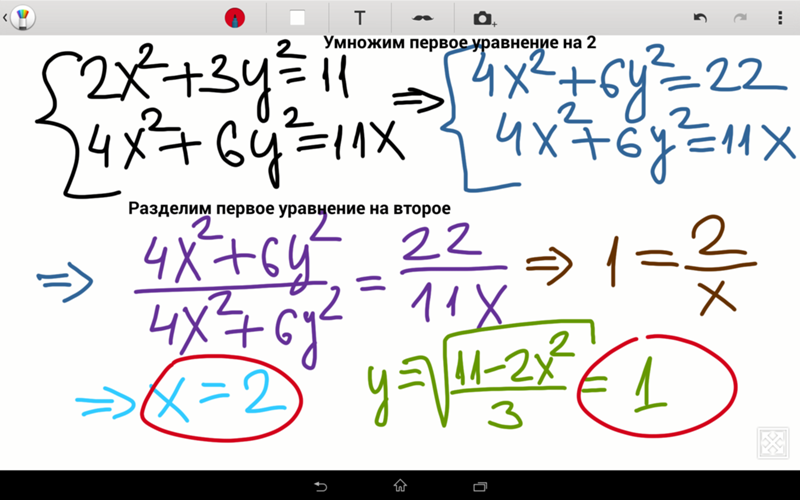 Умножим первое уравнение на 2
{2x²+3y²=11 => {4x²+6y²=22
4x²+6y²=11x 4x²+6y²=11x
Разделим первое уравнение на второе
=> (4x²+6y²)/(4x²+6y²) = 22/11x => 1=2/x
=> x=2 y=√((11-2x²)/3) = 1
T